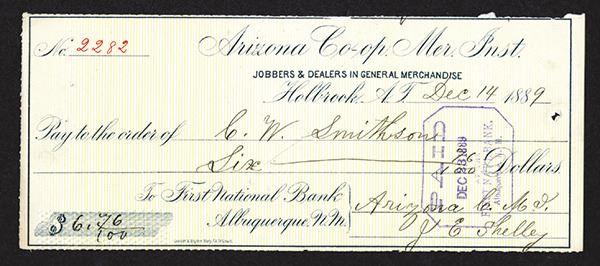 No. 2282
Arizona Co-op. Mer. Inst.
JOBBERS & DEALERS IN GENERAL MERCHANDISE
Holbrook, A.T. Dec 14 1889
Pay to the order of C. W. Smithson
Six 76/100 Dollars
To First National Bank
Albuquerque, N.M.
$6.76/100
Arizona C. M. I.
J E Shelley
PAID
DEC 28 1889
FIRST NATIONAL BANK,